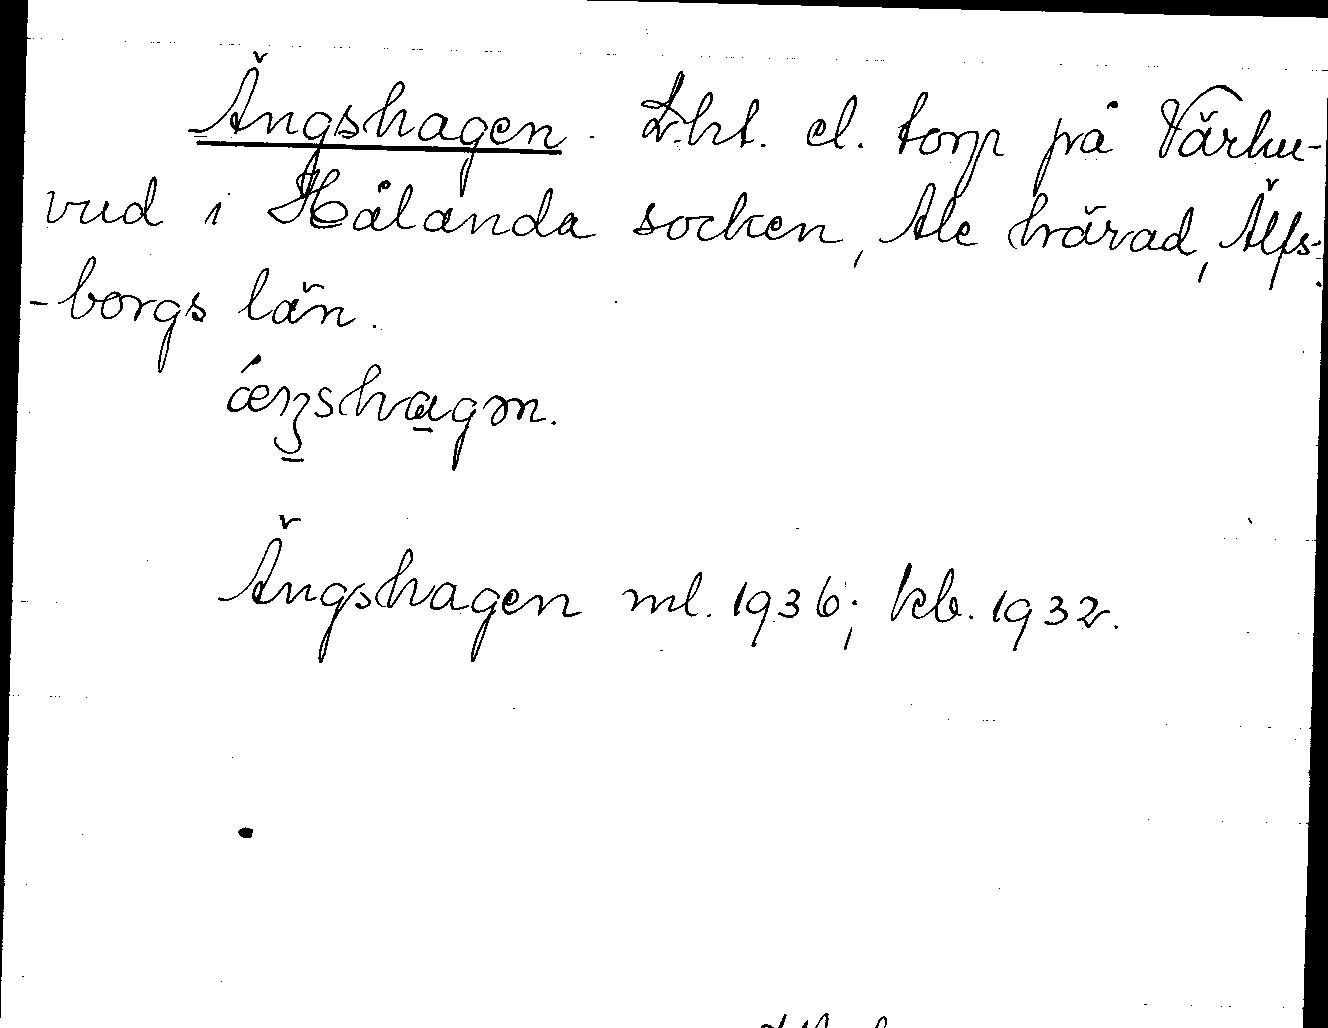 Ängshagen. Lht. el. torp på Värhu-
vud i Hålanda socken, Ale härad, Älfs-
-borgs län.
ǽŋshagən.
Ängshagen ml. 1936; kb. 1932.